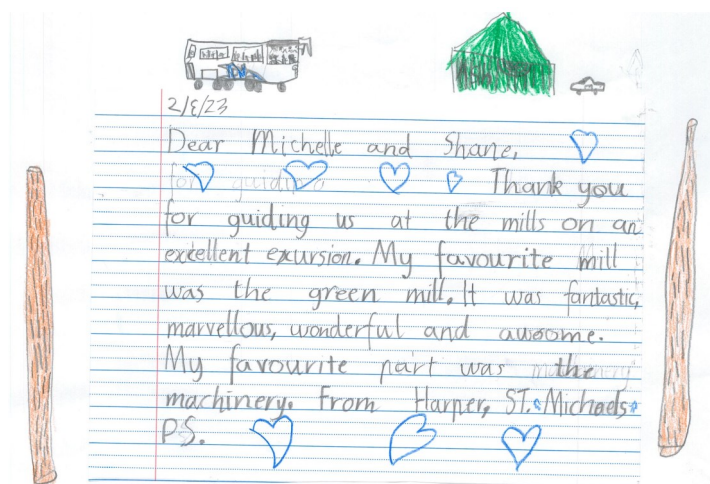 2/8/23
Dear Michelle and Shane,
for guiding Thank you
for guiding us at the mills on an
excellent excursion. My favourite mill
was the green mill. It was fantastic,
marvellous, wonderful and awsome.
My favourite part was the
machinery. From Harper, ST. Michaels
PS.